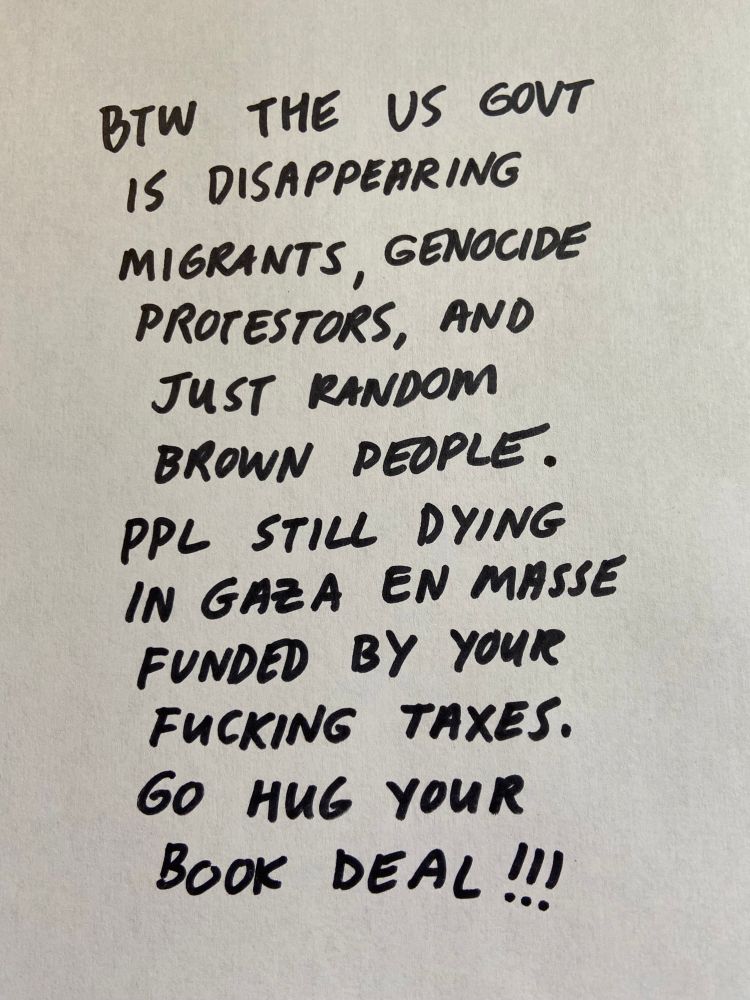 BTW THE US GOVT
IS DISAPPEARING
MIGRANTS, GENOCIDE
PROTESTORS, AND
JUST RANDOM
BROWN PEOPLE.
PPL STILL DYING
IN GAZA EN MASSE
FUNDED BY YOUR
FUCKING TAXES.
GO HUG YOUR
BOOK DEAL!!!